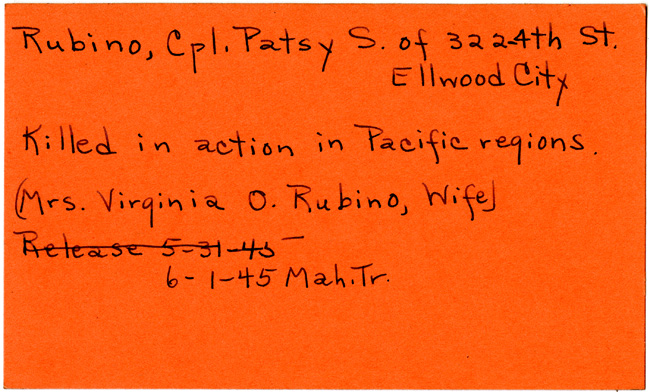 Rubino, Cpl. Patsy S. of 322-4th St.
Ellwood City
Killed in action in Pacific regions.
(Mrs. Virginia O. Rubino, Wife)
Release 5-31-45 –
6-1-45 Mah.Tr.